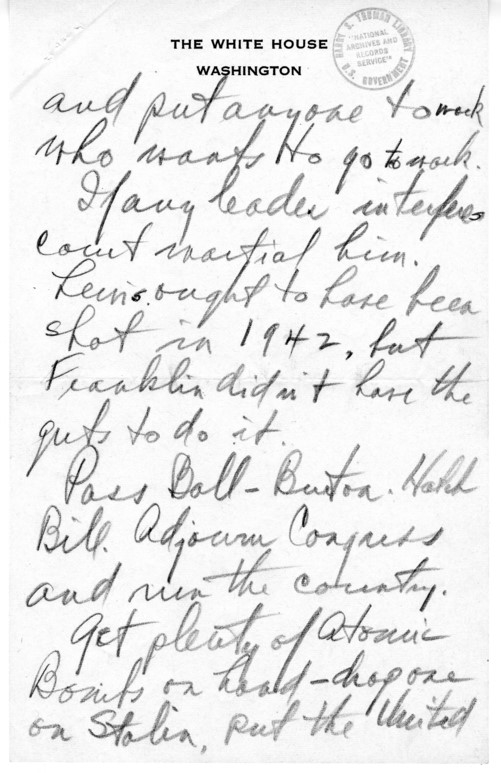 THE WHITE HOUSE
WASHINGTON
HARRY S. TRUMAN LIBRARY
"NATIONAL
ARCHIVES AND
RECORDS
SERVICE"
U.S. GOVERNMENT
and put anyone to work
who wants to go to work.
If any leader interferes
court martial him.
Lewis ought to have been
shot in 1942, but
Franklin didn't have the
guts to do it.
Pass Ball-Burton-Hatch
Bill. Adjourn Congress
and run the country.
Get plenty of Atomic
Bombs on hand - drop one
on Stalin, put the United